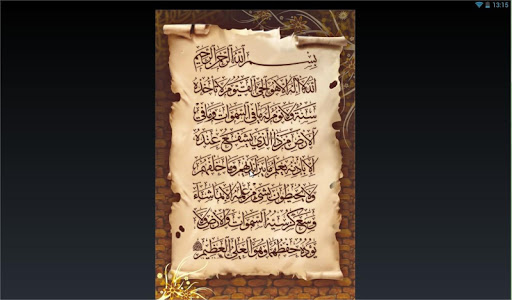 13:15
بِسْمِ اللهِ الرَّحْمٰنِ الرَّحِيمِ
اللهُ لَا إِلٰهَ إِلَّا هُوَ الْحَيُّ الْقَيُّومُ لَا تَأْخُذُهُ
سِنَةٌ وَلَا نَوْمٌ لَهُ مَا فِي السَّمٰوَاتِ وَمَا فِي
الْأَرْضِ مَنْ ذَا الَّذِي يَشْفَعُ عِنْدَهُ
إِلَّا بِإِذْنِهِ يَعْلَمُ مَا بَيْنَ أَيْدِيهِمْ وَمَا خَلْفَهُمْ
وَلَا يُحِيطُونَ بِشَيْءٍ مِنْ عِلْمِهِ إِلَّا بِمَا شَاءَ
وَسِعَ كُرْسِيُّهُ السَّمٰوَاتِ وَالْأَرْضَ وَلَا
يَئُودُهُ حِفْظُهُمَا وَهُوَ الْعَلِيُّ الْعَظِيمُ